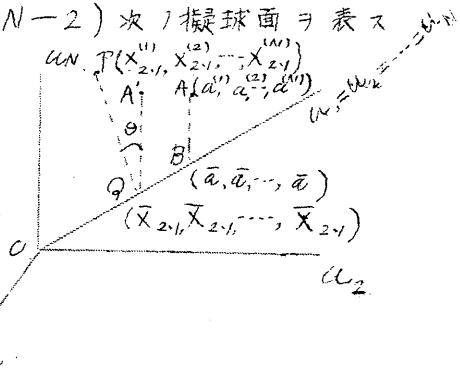 N-2) 次ノ擬球面ヲ表ス
u_N P(x_{2·1}^{(1)}, x_{2·1}^{(2)}, ---, x_{2·1}^{(N)})
A' A(a^{(1)}, a^{(2)}, ---, a^{(N)}) u_1=u_2=---=u_N
θ
B
Q (ā, ā, ---, ā)
(x̄_{2·1}, x̄_{2·1}, ----, x̄_{2·1})
O
u_2